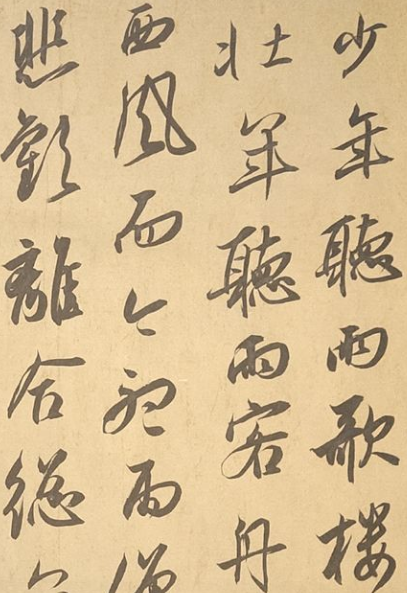 少年聽雨歌楼
壮年聽雨客舟
西風而今聽雨僧
悲歡離合總